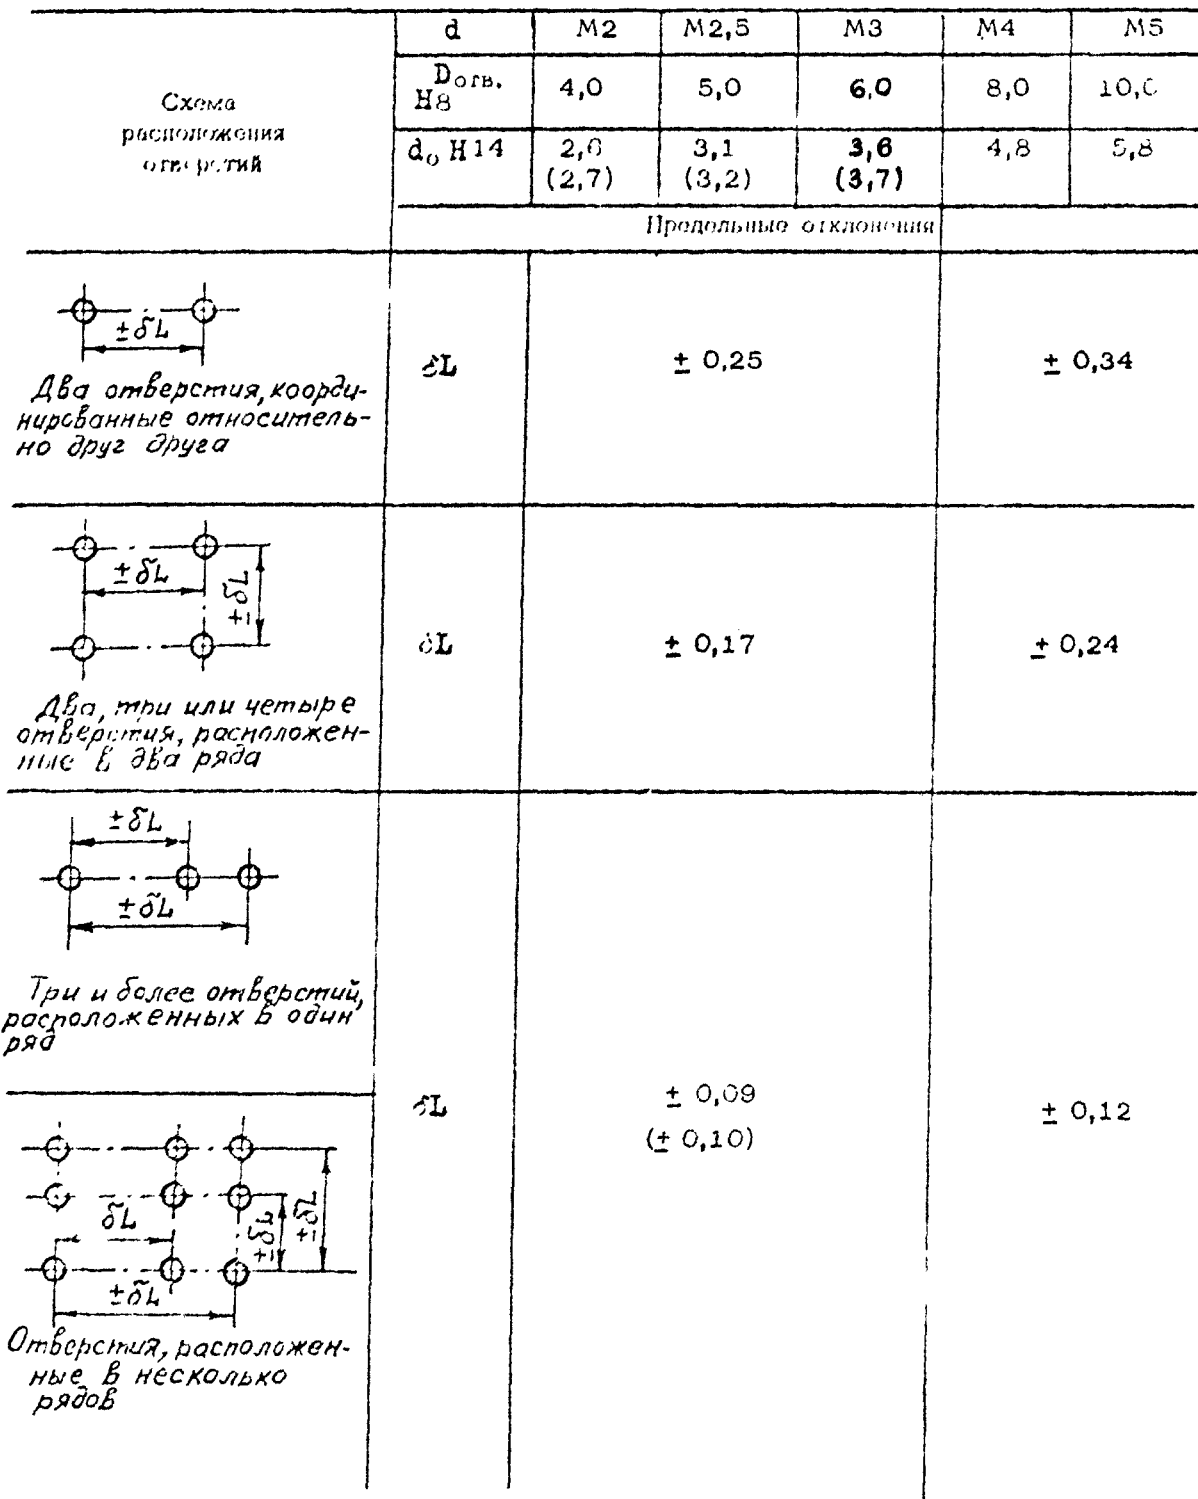 Схема
расположения
отверстий
d М2 М2,5 М3 М4 М5
Dотв. H8 4,0 5,0 6,0 8,0 10,0
d₀ H14 2,6 3,1 3,6 4,8 5,8
(2,7) (3,2) (3,7)
Предельные отклонения
±δL
Два отверстия, коорди-
нированные относитель-
но друг друга
δL ± 0,25 ± 0,34
±δL
±δL
Два, три или четыре
отверстия, расположен-
ные в два ряда
δL ± 0,17 ± 0,24
±δL
±δL
Три и более отверстий,
расположенных в один
ряд
δL ± 0,09 ± 0,12
(± 0,10)
δL
±δL
±δL
±δL
Отверстия, расположен-
ные в несколько
рядов